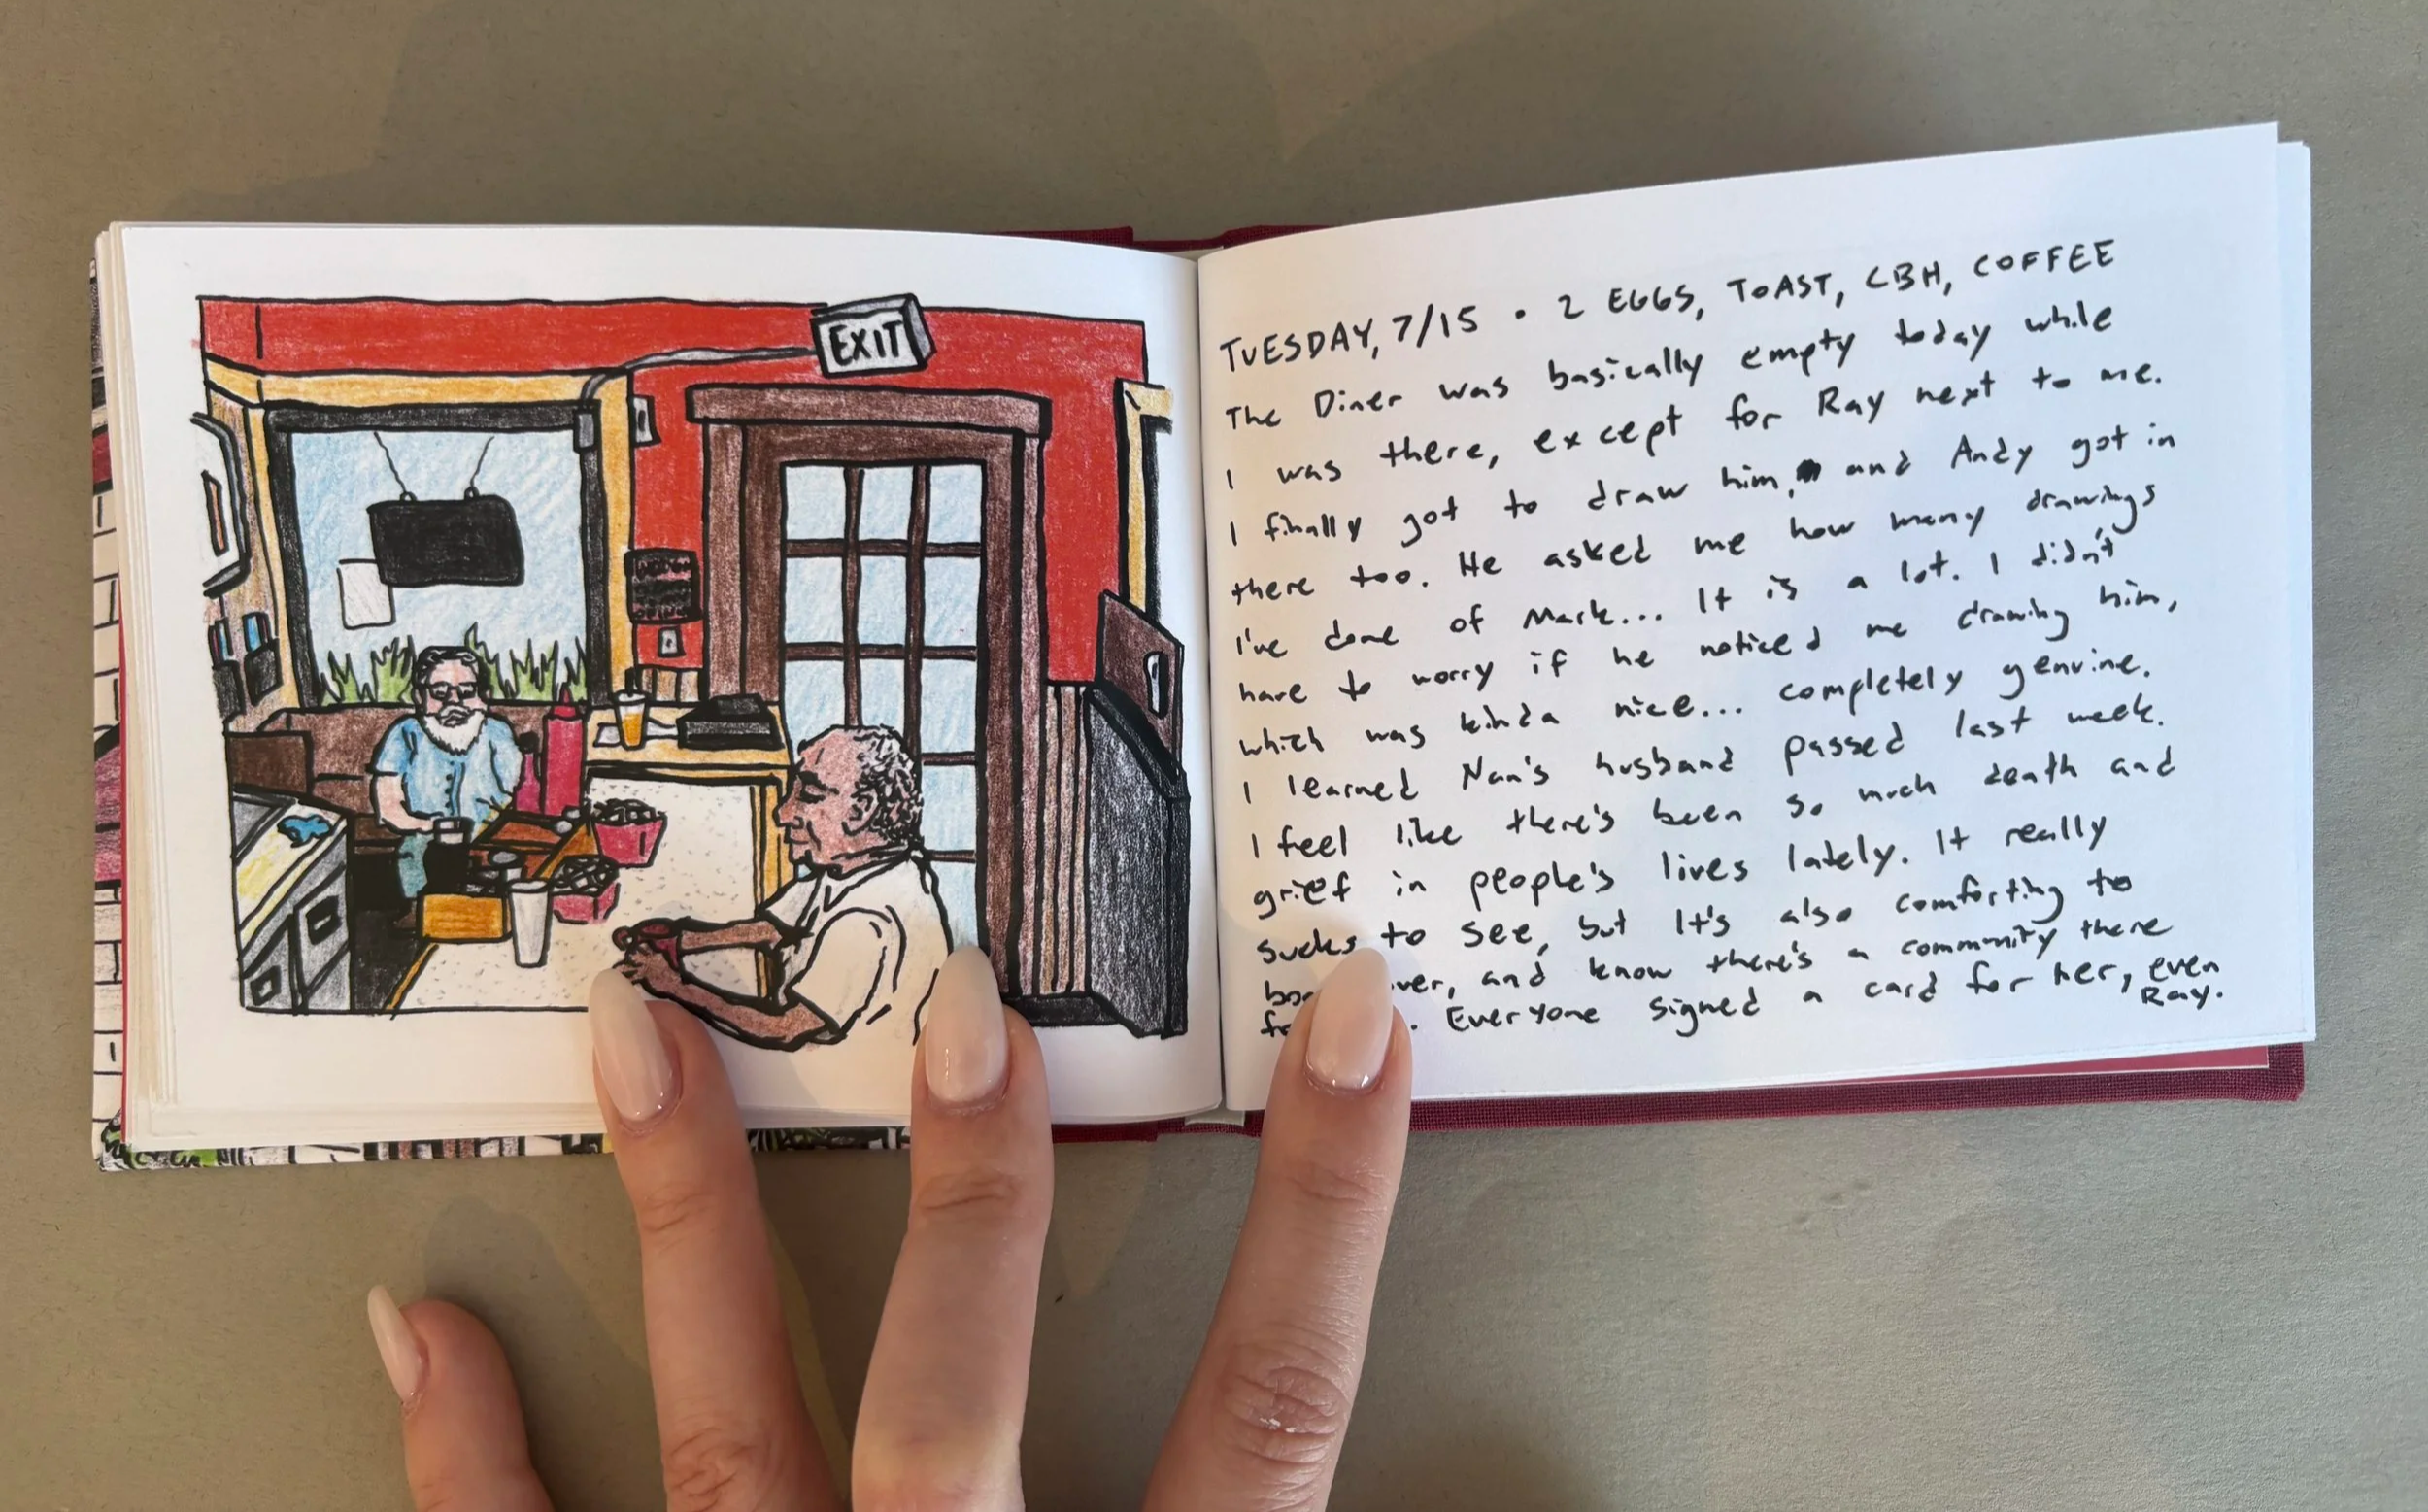 EXIT
TUESDAY, 7/15 • 2 EGGS, TOAST, CBH, COFFEE
The Diner was basically empty today while
I was there, except for Ray next to me.
I finally got to draw him, and Andy got in
there too. He asked me how many drawings
I've done of Mark... It is a lot. I didn't
have to worry if he noticed me drawing him,
which was kinda nice... completely genuine.
I learned Nan's husband passed last week.
I feel like there's been so much death and
grief in people's lives lately. It really
sucks to see, but it's also comforting to
and know there's a community there
Everyone signed a card for her, even
Ray.